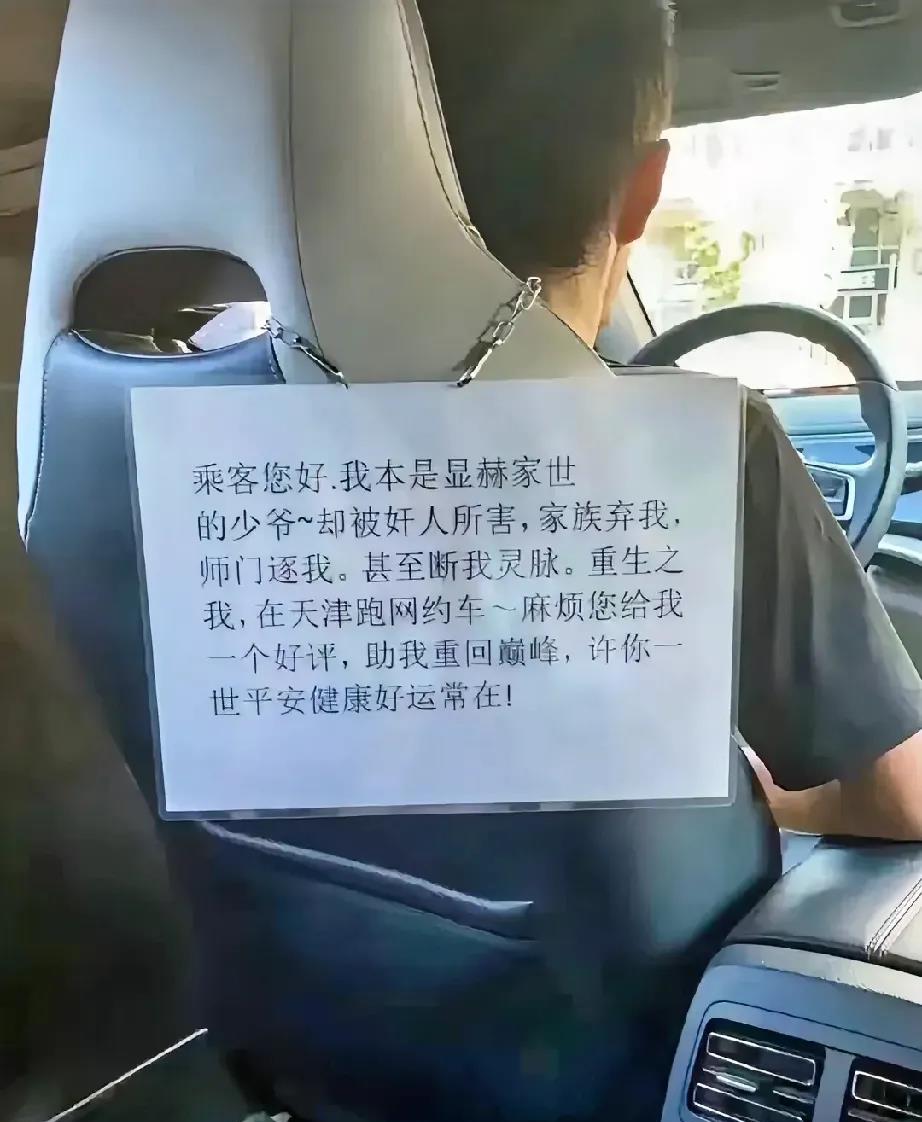 乘客您好.我本是显赫家世
的少爷~却被奸人所害,家族弃我,
师门逐我。甚至断我灵脉。重生之
我,在天津跑网约车~麻烦您给我
一个好评,助我重回巅峰,许你一
世平安健康好运常在!